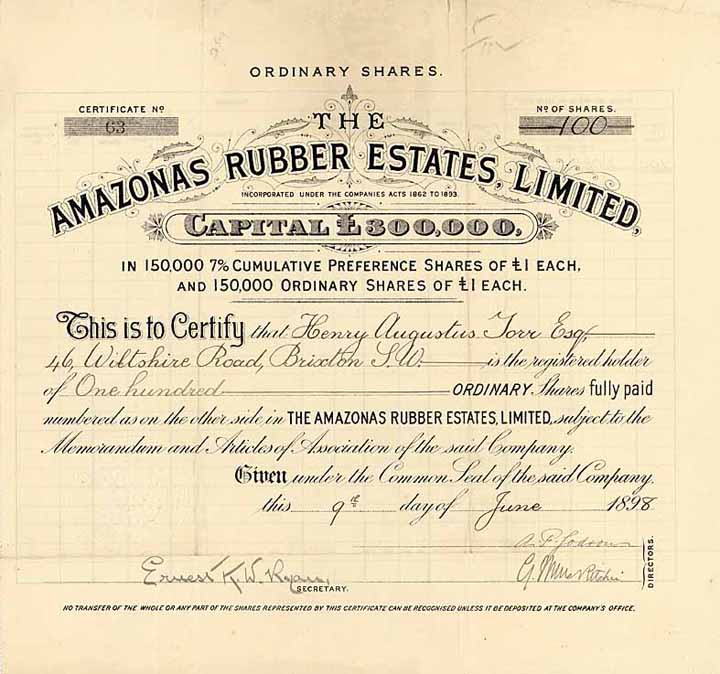 ORDINARY SHARES.
CERTIFICATE Nº
63
Nº OF SHARES.
100
THE
AMAZONAS RUBBER ESTATES, LIMITED,
INCORPORATED UNDER THE COMPANIES ACTS 1862 TO 1893.
CAPITAL £300,000,
IN 150,000 7% CUMULATIVE PREFERENCE SHARES OF £1 EACH,
AND 150,000 ORDINARY SHARES OF £1 EACH.
This is to Certify that Henry Augustus Torr Esq.
46, Wiltshire Road, Brixton S.W. is the registered holder
of One hundred ORDINARY Shares fully paid
numbered as on the other side in THE AMAZONAS RUBBER ESTATES, LIMITED, subject to the
Memorandum and Articles of Association of the said Company.
Given under the Common Seal of the said Company,
this 9th day of June 1898
DIRECTORS.
Ernest K. W. Ryan,
SECRETARY.
NO TRANSFER OF THE WHOLE OR ANY PART OF THE SHARES REPRESENTED BY THIS CERTIFICATE CAN BE RECOGNISED UNLESS IT BE DEPOSITED AT THE COMPANY'S OFFICE.